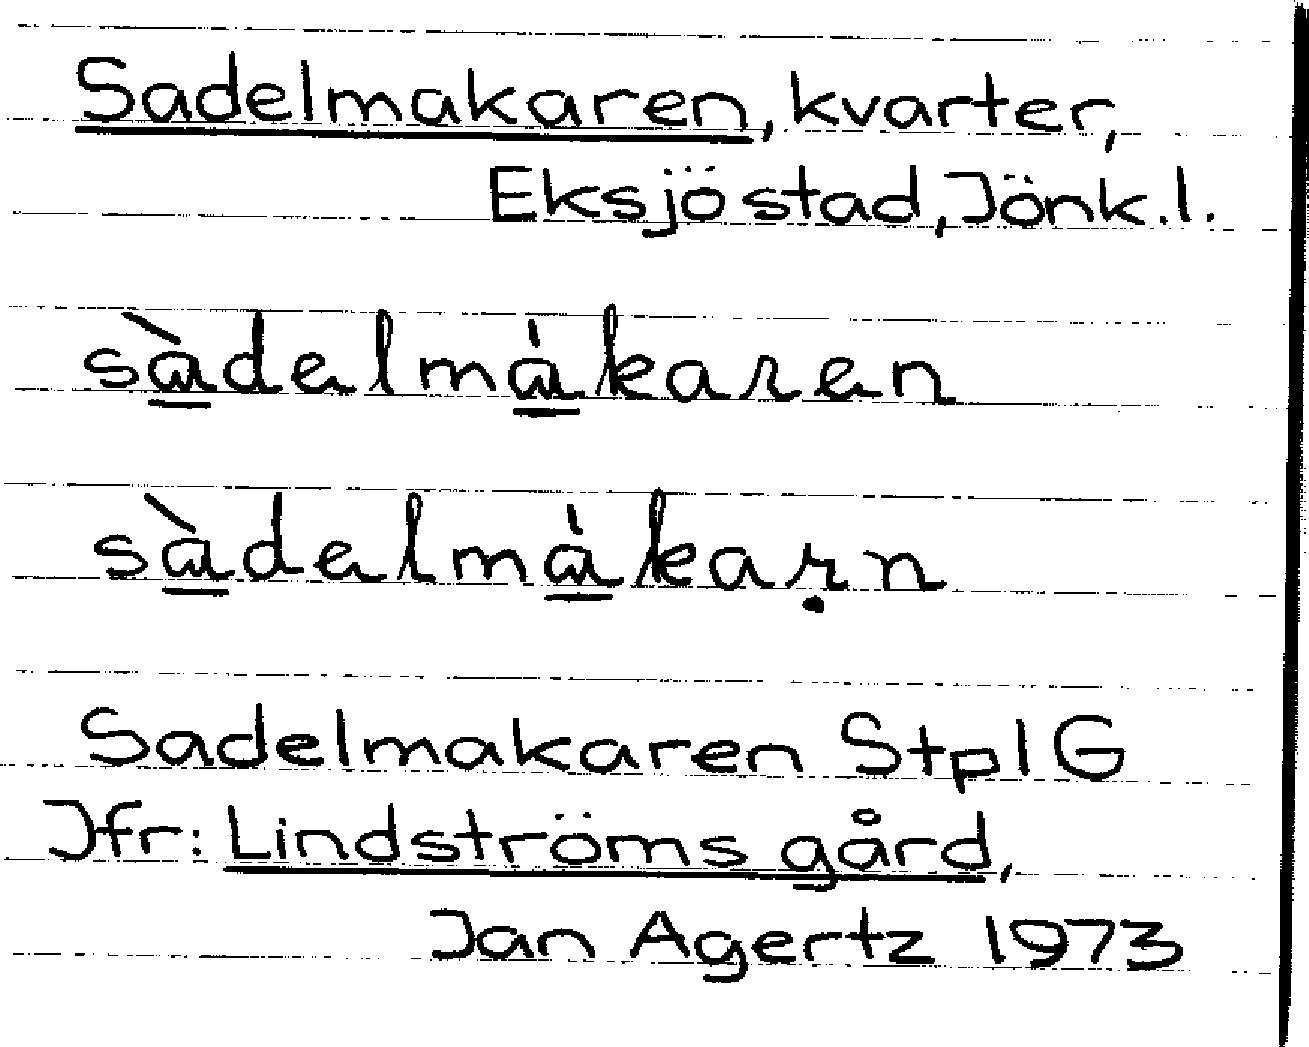 Sadelmakaren, kvarter,
Eksjö stad, Jönk.l.
sàdelmàkaren
sàdelmàkaṛn
Sadelmakaren Stpl G
Jfr: Lindströms gård,
Jan Agertz 1973